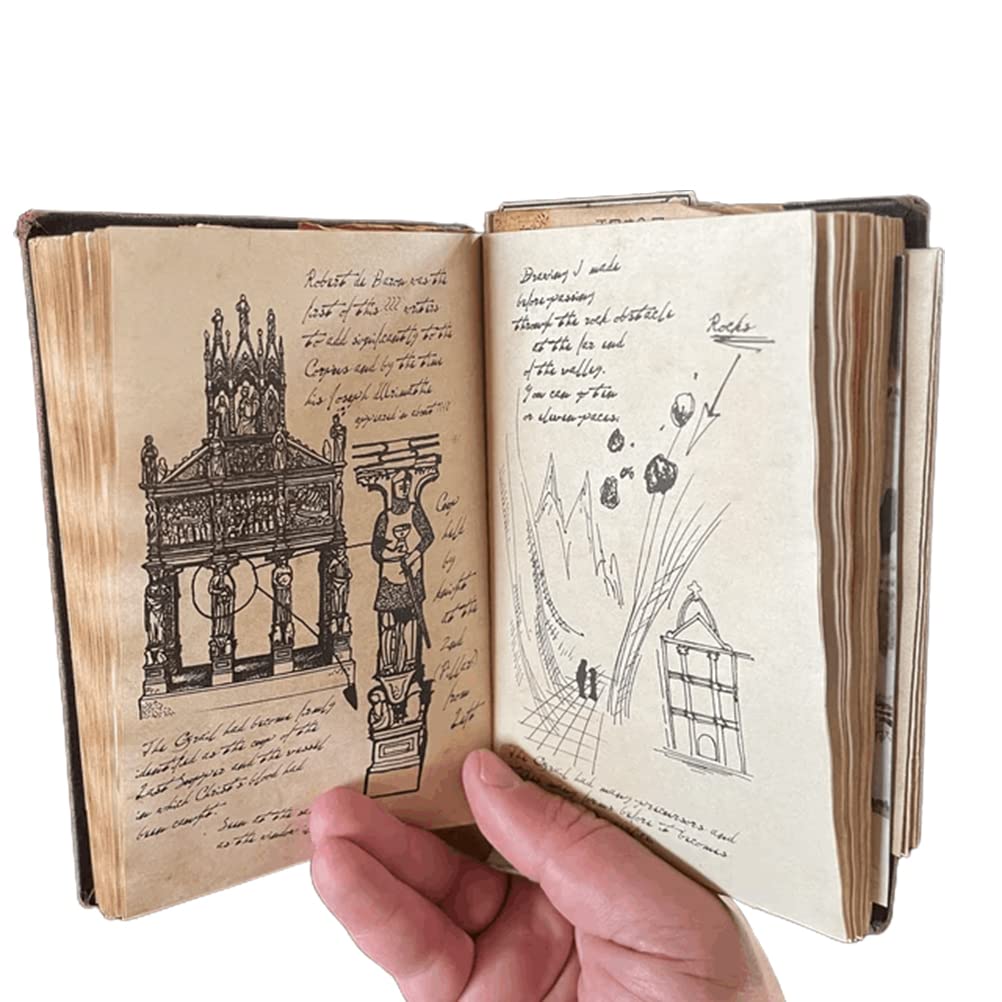 Robert de Baron was the
first of this writers
to add significantly to the
Corpus and by the time
his Joseph
appeared in about
Cup
held
by
knight
at the
2nd
(Pillar)
from
Left
The Grail had become firmly
identified as the cup of the
Last Supper and the vessel
in which Christ's blood had
been caught.
Seen at the
as the
Drawing I made
before passing
through the rock obstacle
at the far end
of the valley.
You can go ten
or eleven paces.
Rocks
The Grail had many precursors and
forms before it becomes